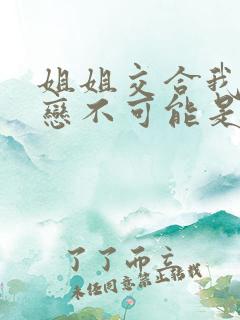 姐姐交合我
戀不可能是
了了而立
未经同意禁止转载